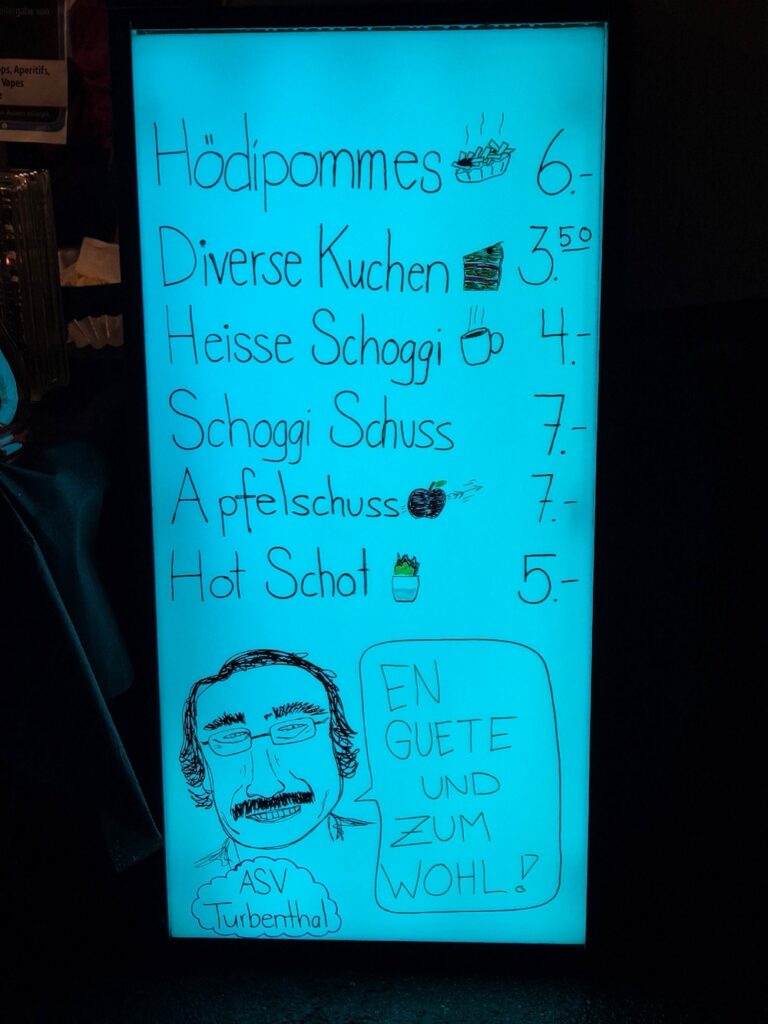 ps, Aperitifs,
Vapes
Hödipommes 6.-
Diverse Kuchen 3.50
Heisse Schoggi 4.-
Schoggi Schuss 7.-
Apfelschuss 7.-
Hot Schot 5.-
EN
GUETE
UND
ZUM
WOHL!
ASV
Turbenthal